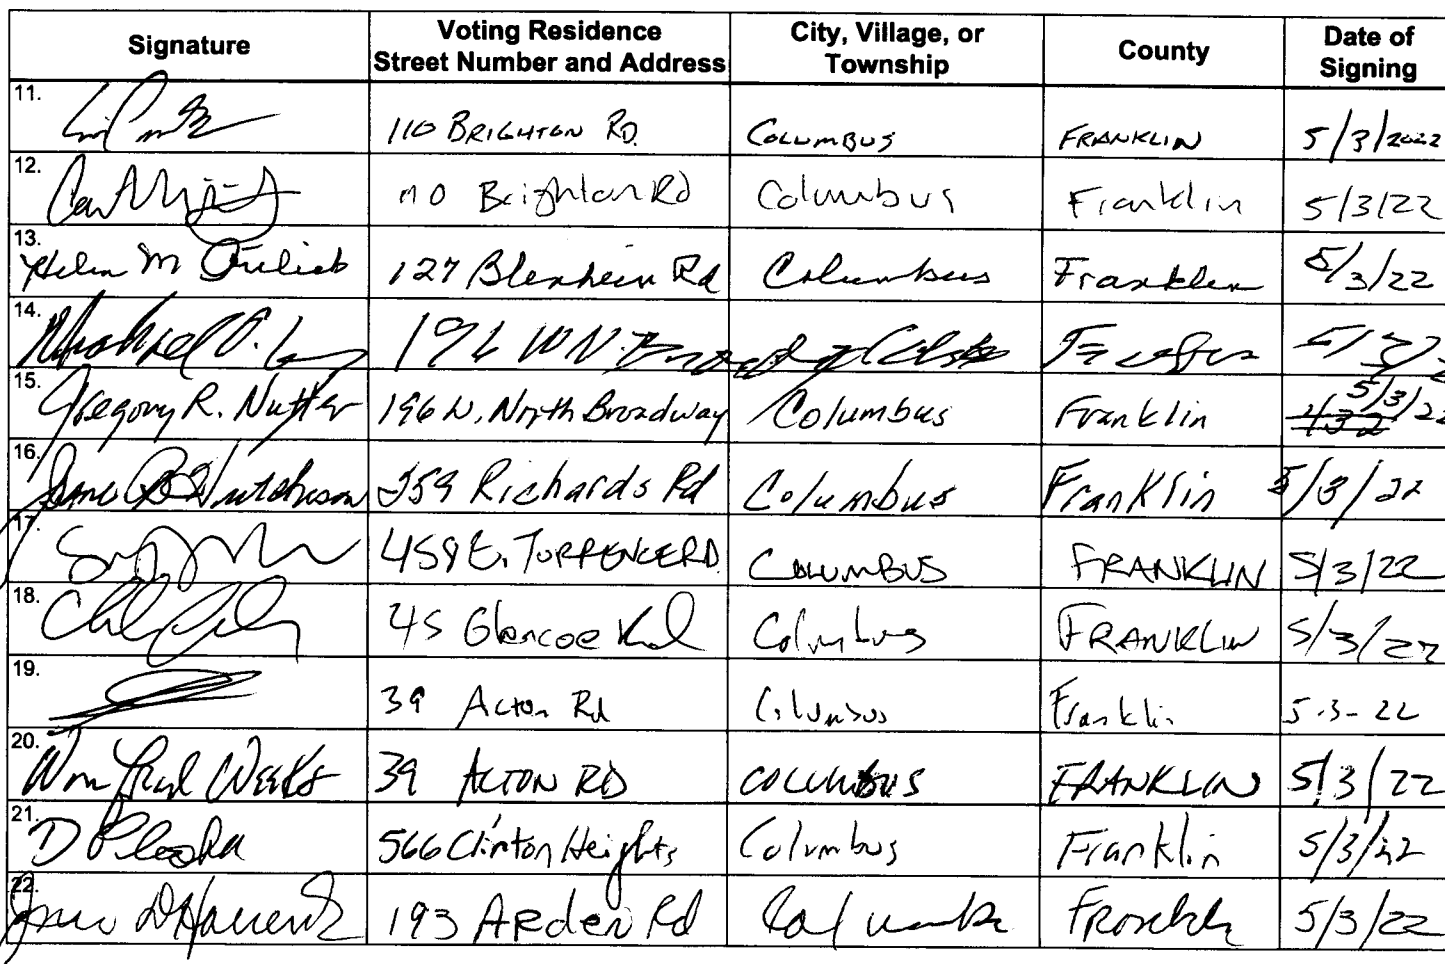 Signature Voting Residence Street Number and Address City, Village, or Township County Date of Signing
11. 110 BRIGHTON RD. COLUMBUS FRANKLIN 5/3/2022
12. 110 Brighton Rd Columbus Franklin 5/3/22
13. Helen M 127 Blenheim Rd Columbus Franklin 5/3/22
14. Michael 196 W N.
15. Gregory R. Nutter 196 W. North Broadway Columbus Franklin 5/3/22
16. Hutchison 359 Richards Rd Columbus Franklin 5/3/22
17. 458 E. TORRENCE RD. COLUMBUS FRANKLIN 5/3/22
18. 45 Glencoe Columbus FRANKLIN 5/3/22
19. 39 Acton Rd Columbus Franklin 5-3-22
20. Wm Paul Weeks 39 ACTON RD COLUMBUS FRANKLIN 5/3/22
21. D Plesha 566 Clinton Heights Columbus Franklin 5/3/22
22. 193 Arden Rd Columbus Franklin 5/3/22